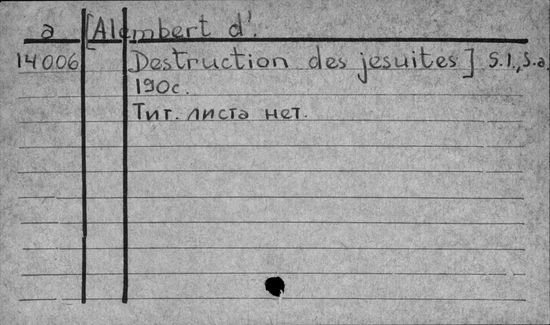 a [Alembert d'.
14006 Destruction des jesuites] S.l., S.a.
190c.
Тит. листа нет.